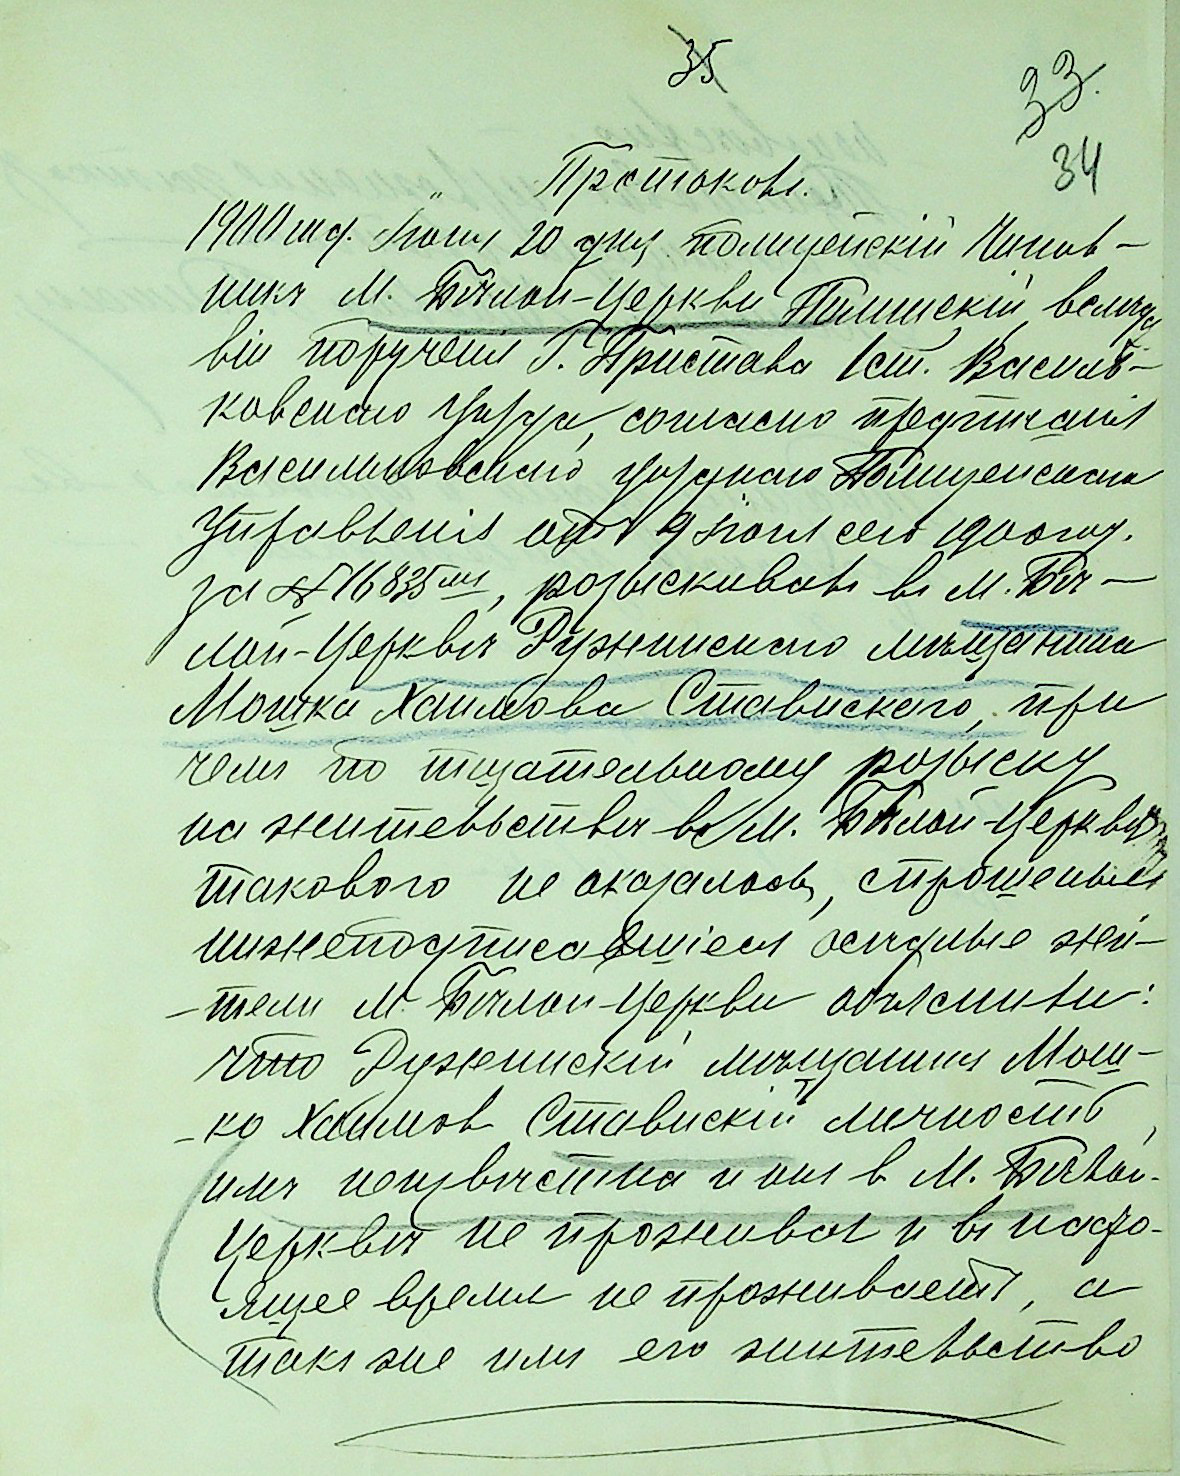 35
33.
34
Протоколъ.
1900 год. Іюля 20 дня полицейскій Чинов-
никъ М. Бѣлой-Церкви вслѣдст
віи порученія Г. Пристава 1 ст. Василь-
ковскаго уѣзда, согласно предписанія
Васильковскаго уѣзднаго Полицейскаго
Управленія отъ 9 Іюля сего 1900 год.
за № 16835, розыскивалъ въ М. Бѣ-
лой-Церквѣ Ружинскаго мѣщанина
Мошка Хаимова Ставискаго, при
чемъ по тщательному розыску
на жительствѣ въ М. Бѣлой-Церквѣ
такового не оказалось, спрошеные
нижеподписавшіеся осѣдлые жи-
-тели М. Бѣлой-Церкви объяснили:
что Ружинскій мѣщанинъ Мош-
-ко Хаимов Ставискій личность
имъ неизвѣстна и онъ в М. Бѣлой-
Церквѣ не проживал и въ насто-
ящее время не проживаетъ, а
такъ же имъ его жительство